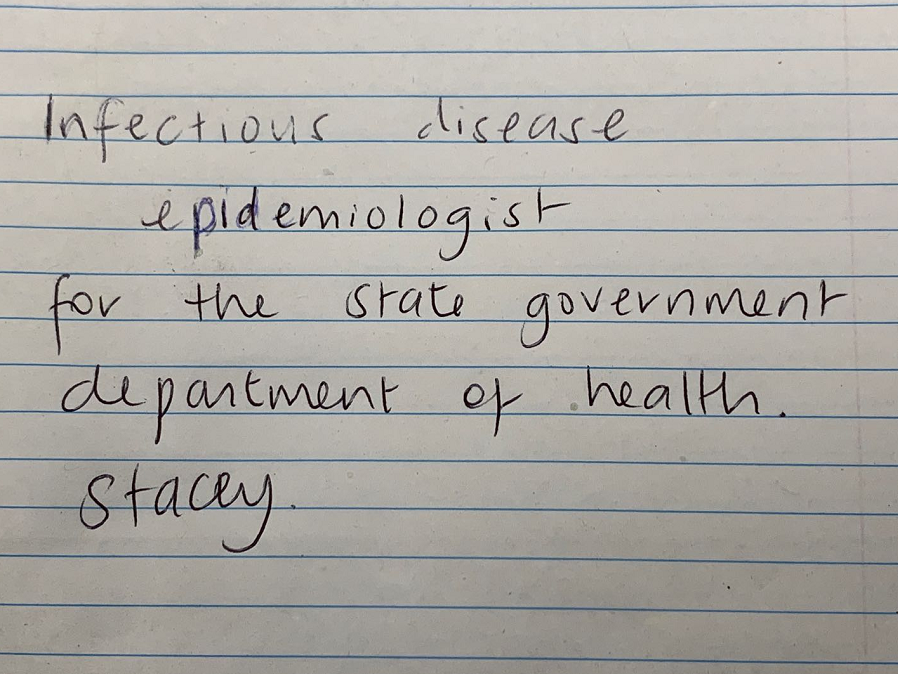 Infectious disease
epidemiologist
for the state government
department of health.
Stacey.